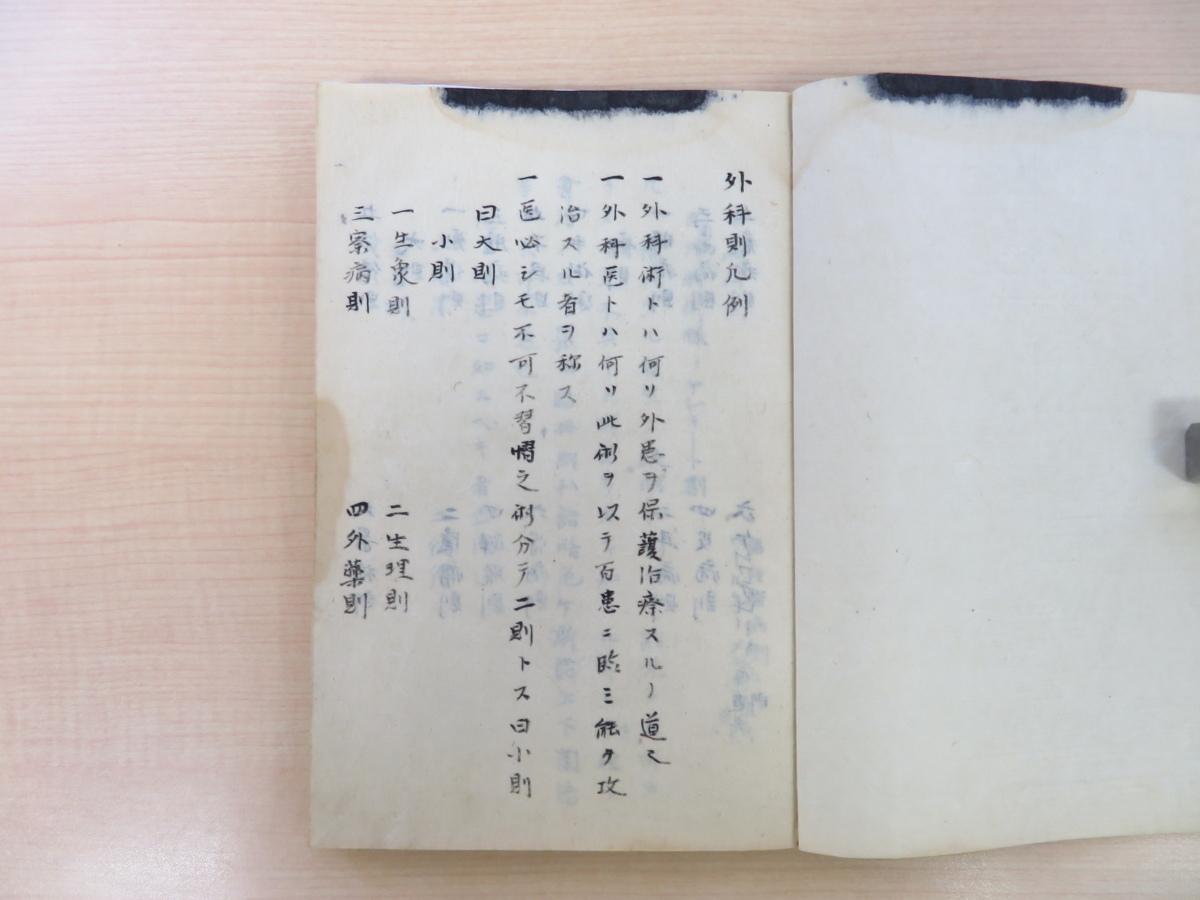 外科則凡例
一外科術トハ何リ外患ヲ保護治療スルノ道也
一外科医トハ何リ此術ヲ以テ百患ニ臨ミ能ク攻
治スル者ヲ称ス
一医必シモ不可不習慴之術分テ二則トス曰小則
曰大則
小則
一生象則
二生理則
三察病則
四外薬則